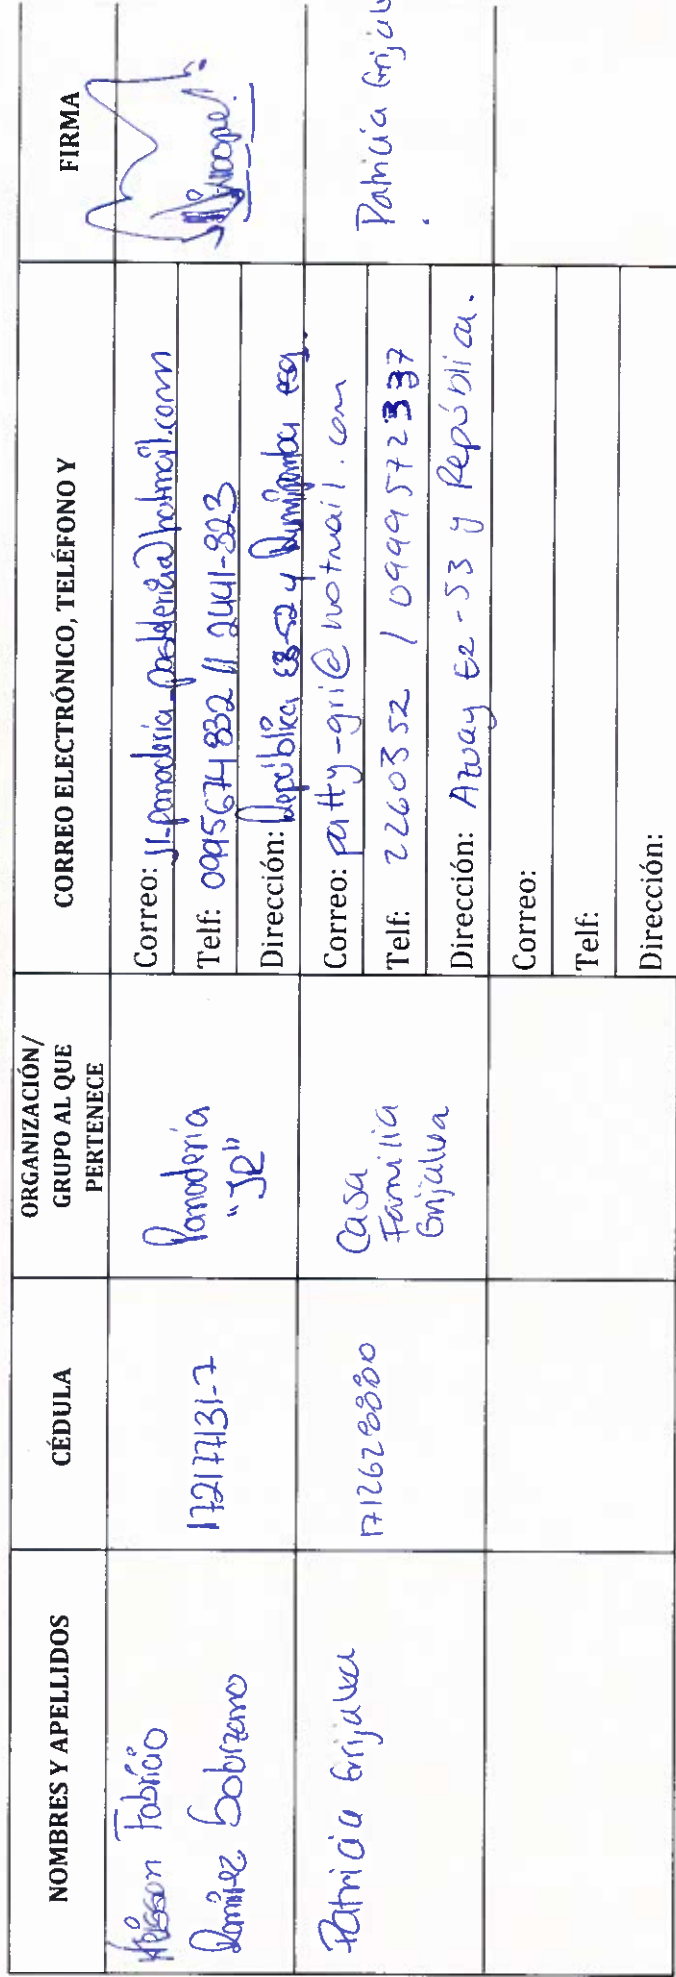 NOMBRES Y APELLIDOS
CÉDULA
ORGANIZACIÓN/
GRUPO AL QUE
PERTENECE
CORREO ELECTRÓNICO, TELÉFONO Y
FIRMA
Fabricio
Ramirez Solorzano
172177131-7
Panaderia
"JR"
Correo: jr-panaderia-pasteleria@hotmail.com
Telf: 0995674832 // 2441-823
Dirección: República E3-52 y Rumiñahui esq.
Patricia Grijalva
1712628880
Casa
Familia
Grijalva
Correo: patty-gri@hotmail.com
Telf: 2260352 / 0999572337
Dirección: Azuay E2-53 y República.
Patricia Grijalv
Correo:
Telf:
Dirección: